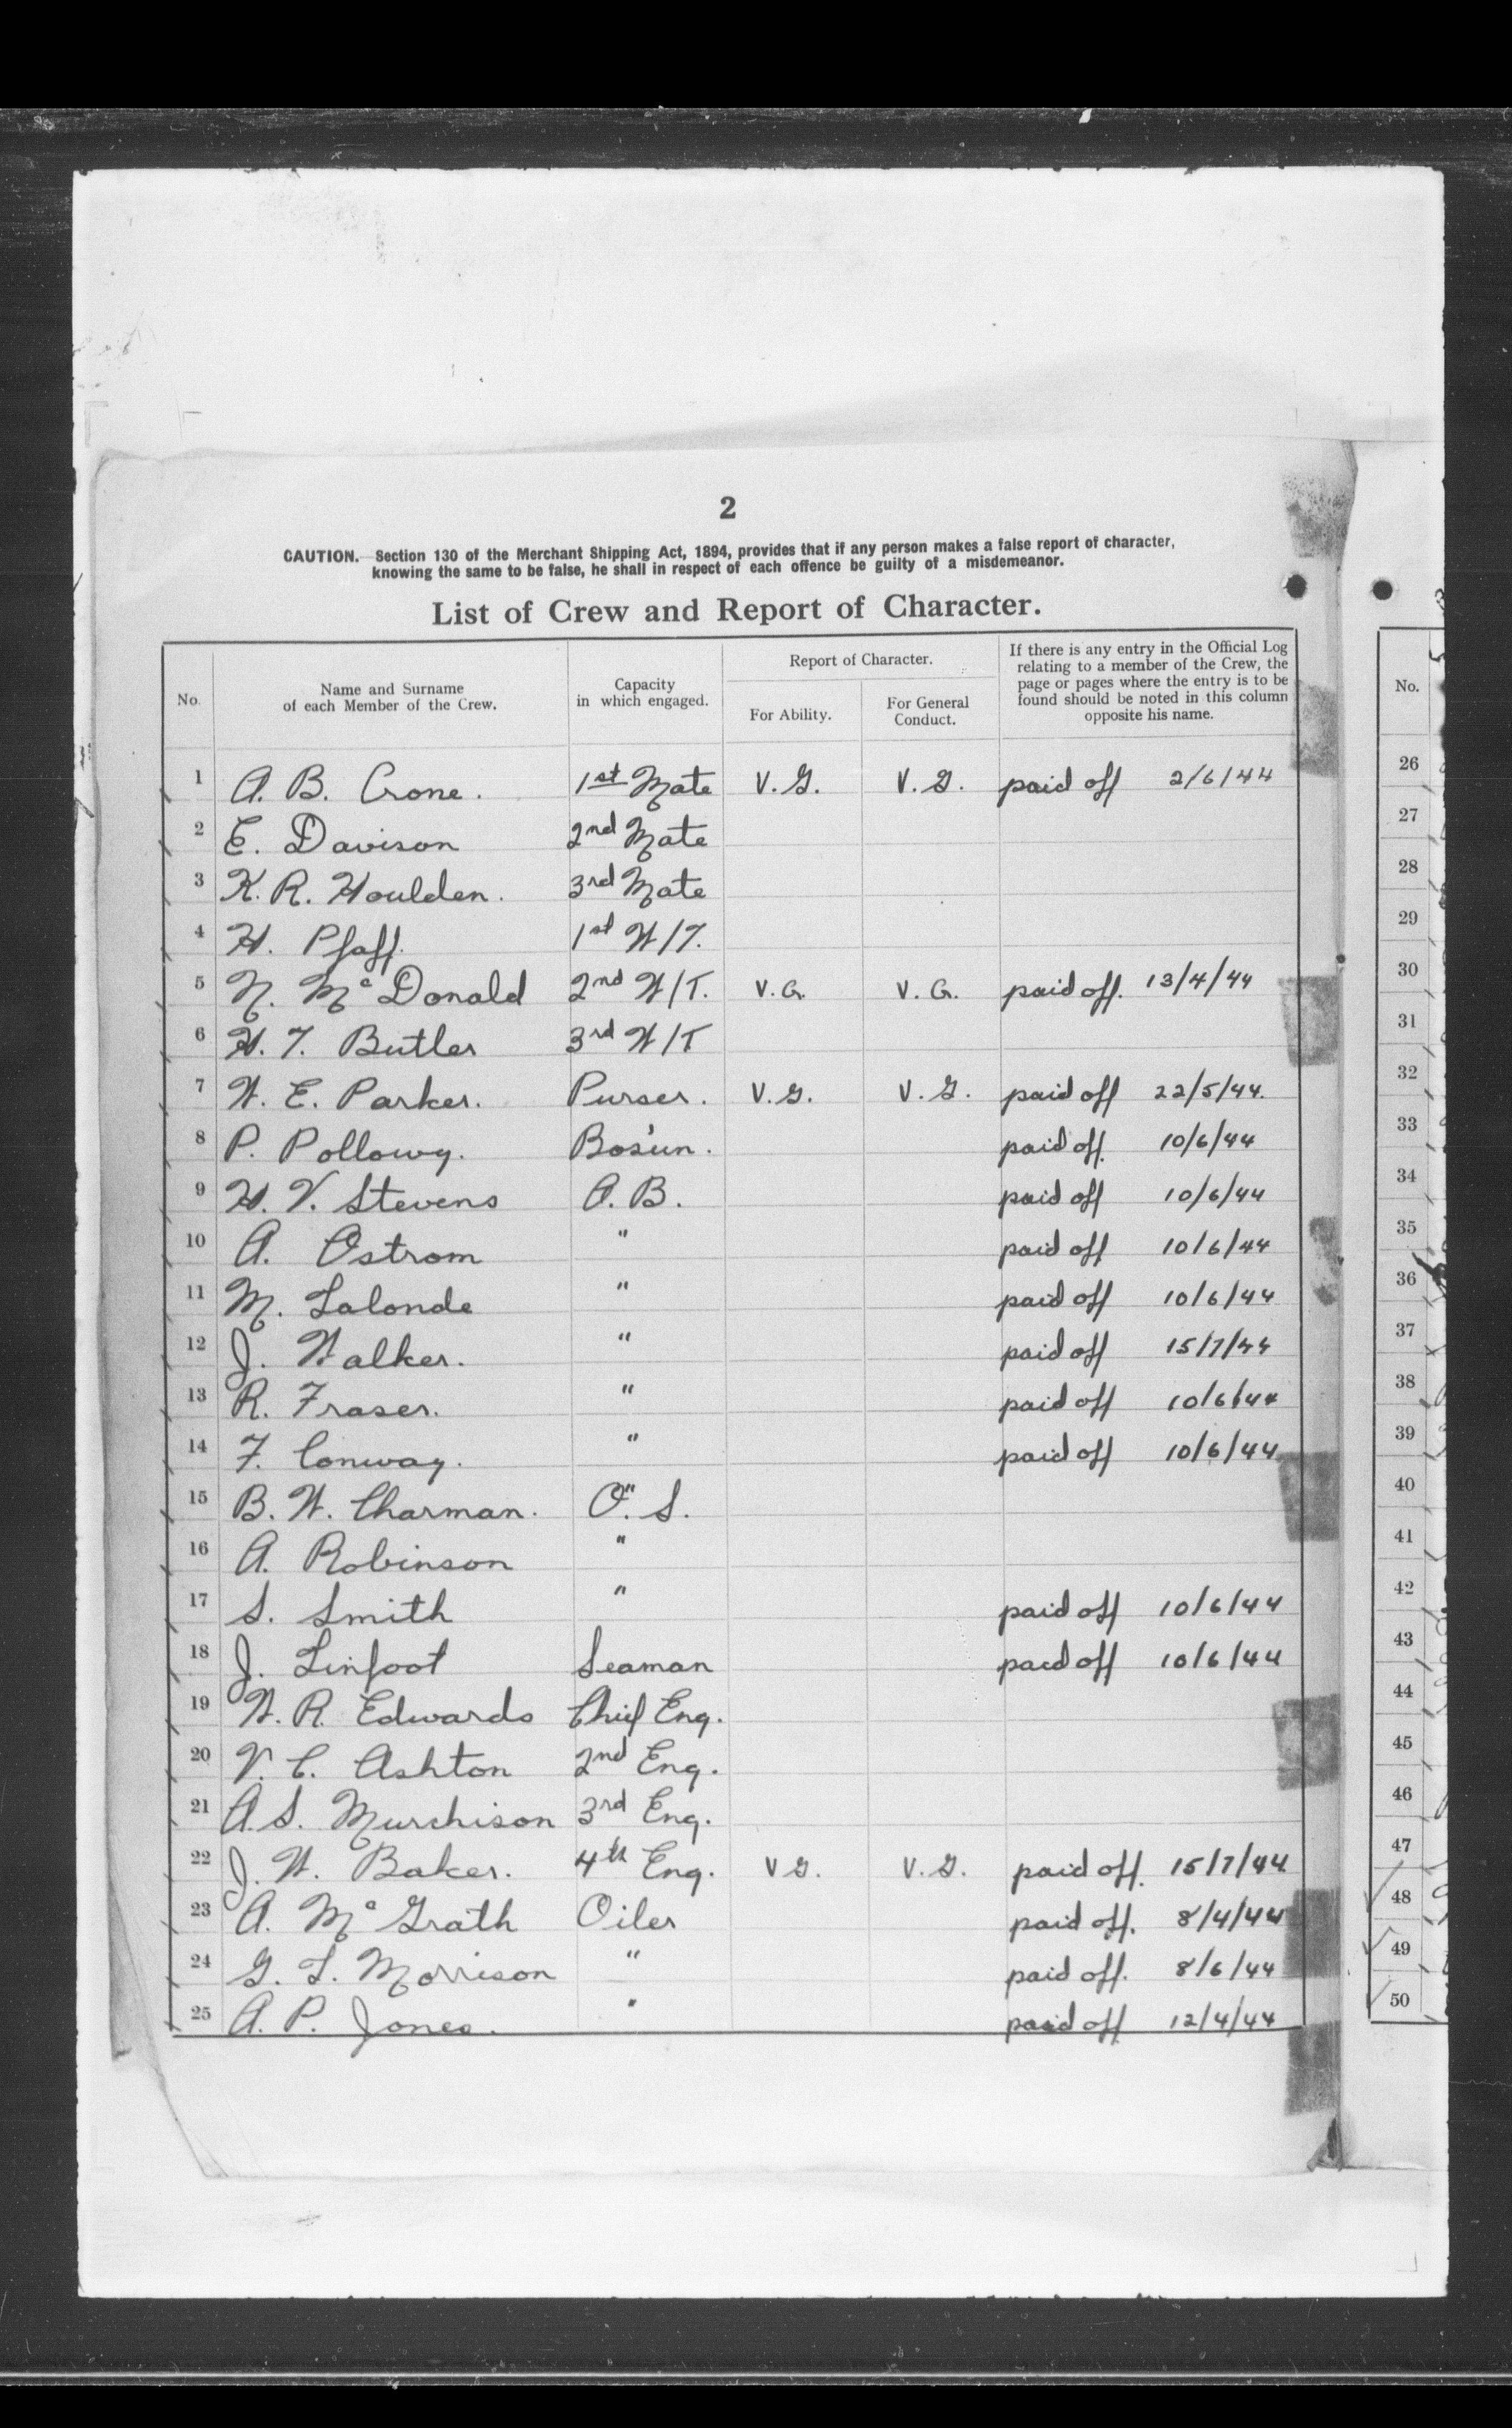 2
CAUTION.—Section 130 of the Merchant Shipping Act, 1894, provides that if any person makes a false report of character,
knowing the same to be false, he shall in respect of each offence be guilty of a misdemeanor.
List of Crew and Report of Character.
No. Name and Surname of each Member of the Crew. Capacity in which engaged. Report of Character. For Ability. For General Conduct. If there is any entry in the Official Log relating to a member of the Crew, the page or pages where the entry is to be found should be noted in this column opposite his name.
1 A. B. Crone. 1st Mate V.G. V.G. paid off 2/6/44
2 E. Davison 2nd Mate
3 K. R. Houlden. 3rd Mate
4 H. Pfaff. 1st W/T.
5 N. McDonald 2nd W/T. V.G. V.G. paid off. 13/4/44
6 H. T. Butler 3rd W/T
7 W. E. Parker. Purser. V.G. V.G. paid off 22/5/44.
8 P. Pollowy. Bos'un. paid off. 10/6/44
9 H. V. Stevens A.B. paid off 10/6/44
10 A. Ostrom " paid off 10/6/44
11 M. Lalonde " paid off 10/6/44
12 J. Walker. " paid off 15/7/44
13 R. Fraser. " paid off 10/6/44
14 F. Conway. " paid off 10/6/44
15 B. W. Charman. O". S.
16 A. Robinson "
17 S. Smith " paid off 10/6/44
18 J. Linfoot Seaman paid off 10/6/44
19 W. R. Edwards Chief Eng.
20 V. C. Ashton 2nd Eng.
21 A. S. Murchison 3rd Eng.
22 J. W. Baker. 4th Eng. V G. V.G. paid off. 15/7/44
23 A. McGrath Oiler paid off. 8/4/44
24 G. L. Morrison " paid off. 8/6/44
25 A. P. Jones. " paid off 12/4/44
No.
26
27
28
29
30
31
32
33
34
35
36
37
38
39
40
41
42
43
44
45
46
47
48
49
50